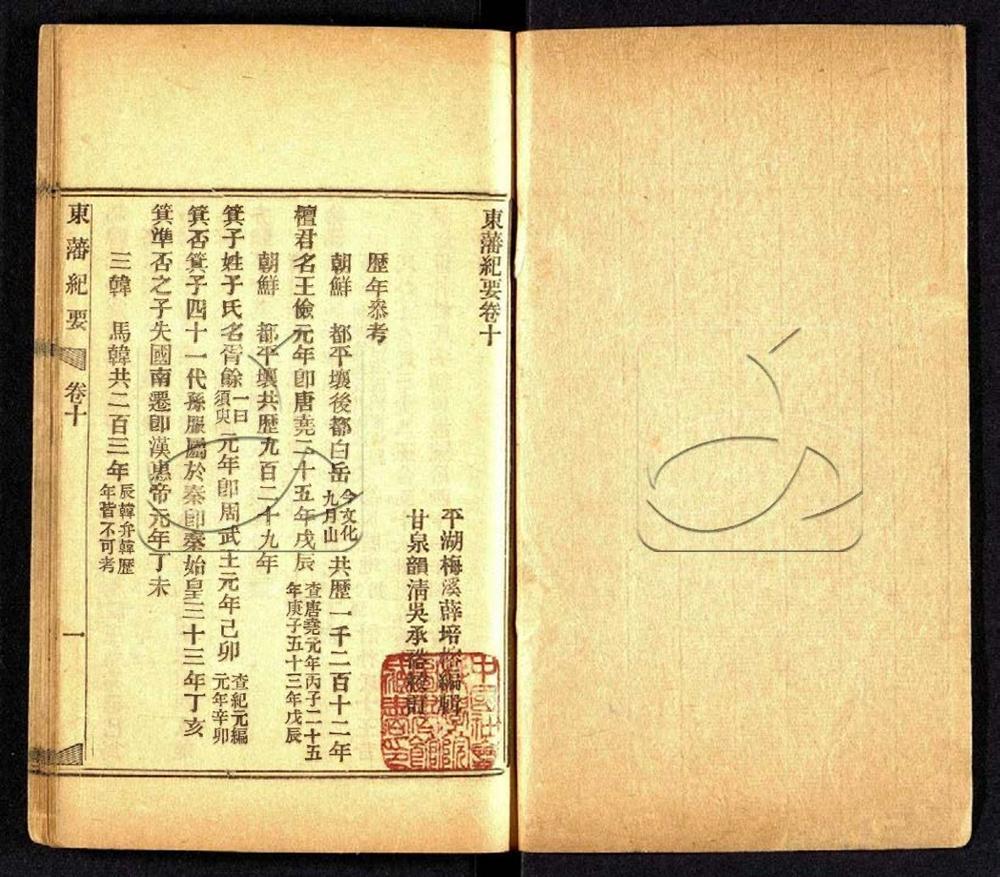 東藩紀要卷十
平湖梅溪薛培榕編輯
甘泉韻清吳承
歷年叅考
朝鮮　都平壤後都白岳今文化九月山共歷一千二百十二年
檀君名王儉元年卽唐堯二十五年戊辰查唐堯元年丙子二十五年庚子五十三年戊辰
朝鮮　都平壤共歷九百二十九年
箕子姓子氏名胥餘一曰須臾元年卽周武王元年己卯查紀元編元年辛卯
箕否箕子四十一代孫服屬於秦卽秦始皇三十三年丁亥
箕準否之子失國南遷卽漢惠帝元年丁未
三韓　馬韓共二百三年辰韓弁韓歷年皆不可考
東藩紀要　卷十　一